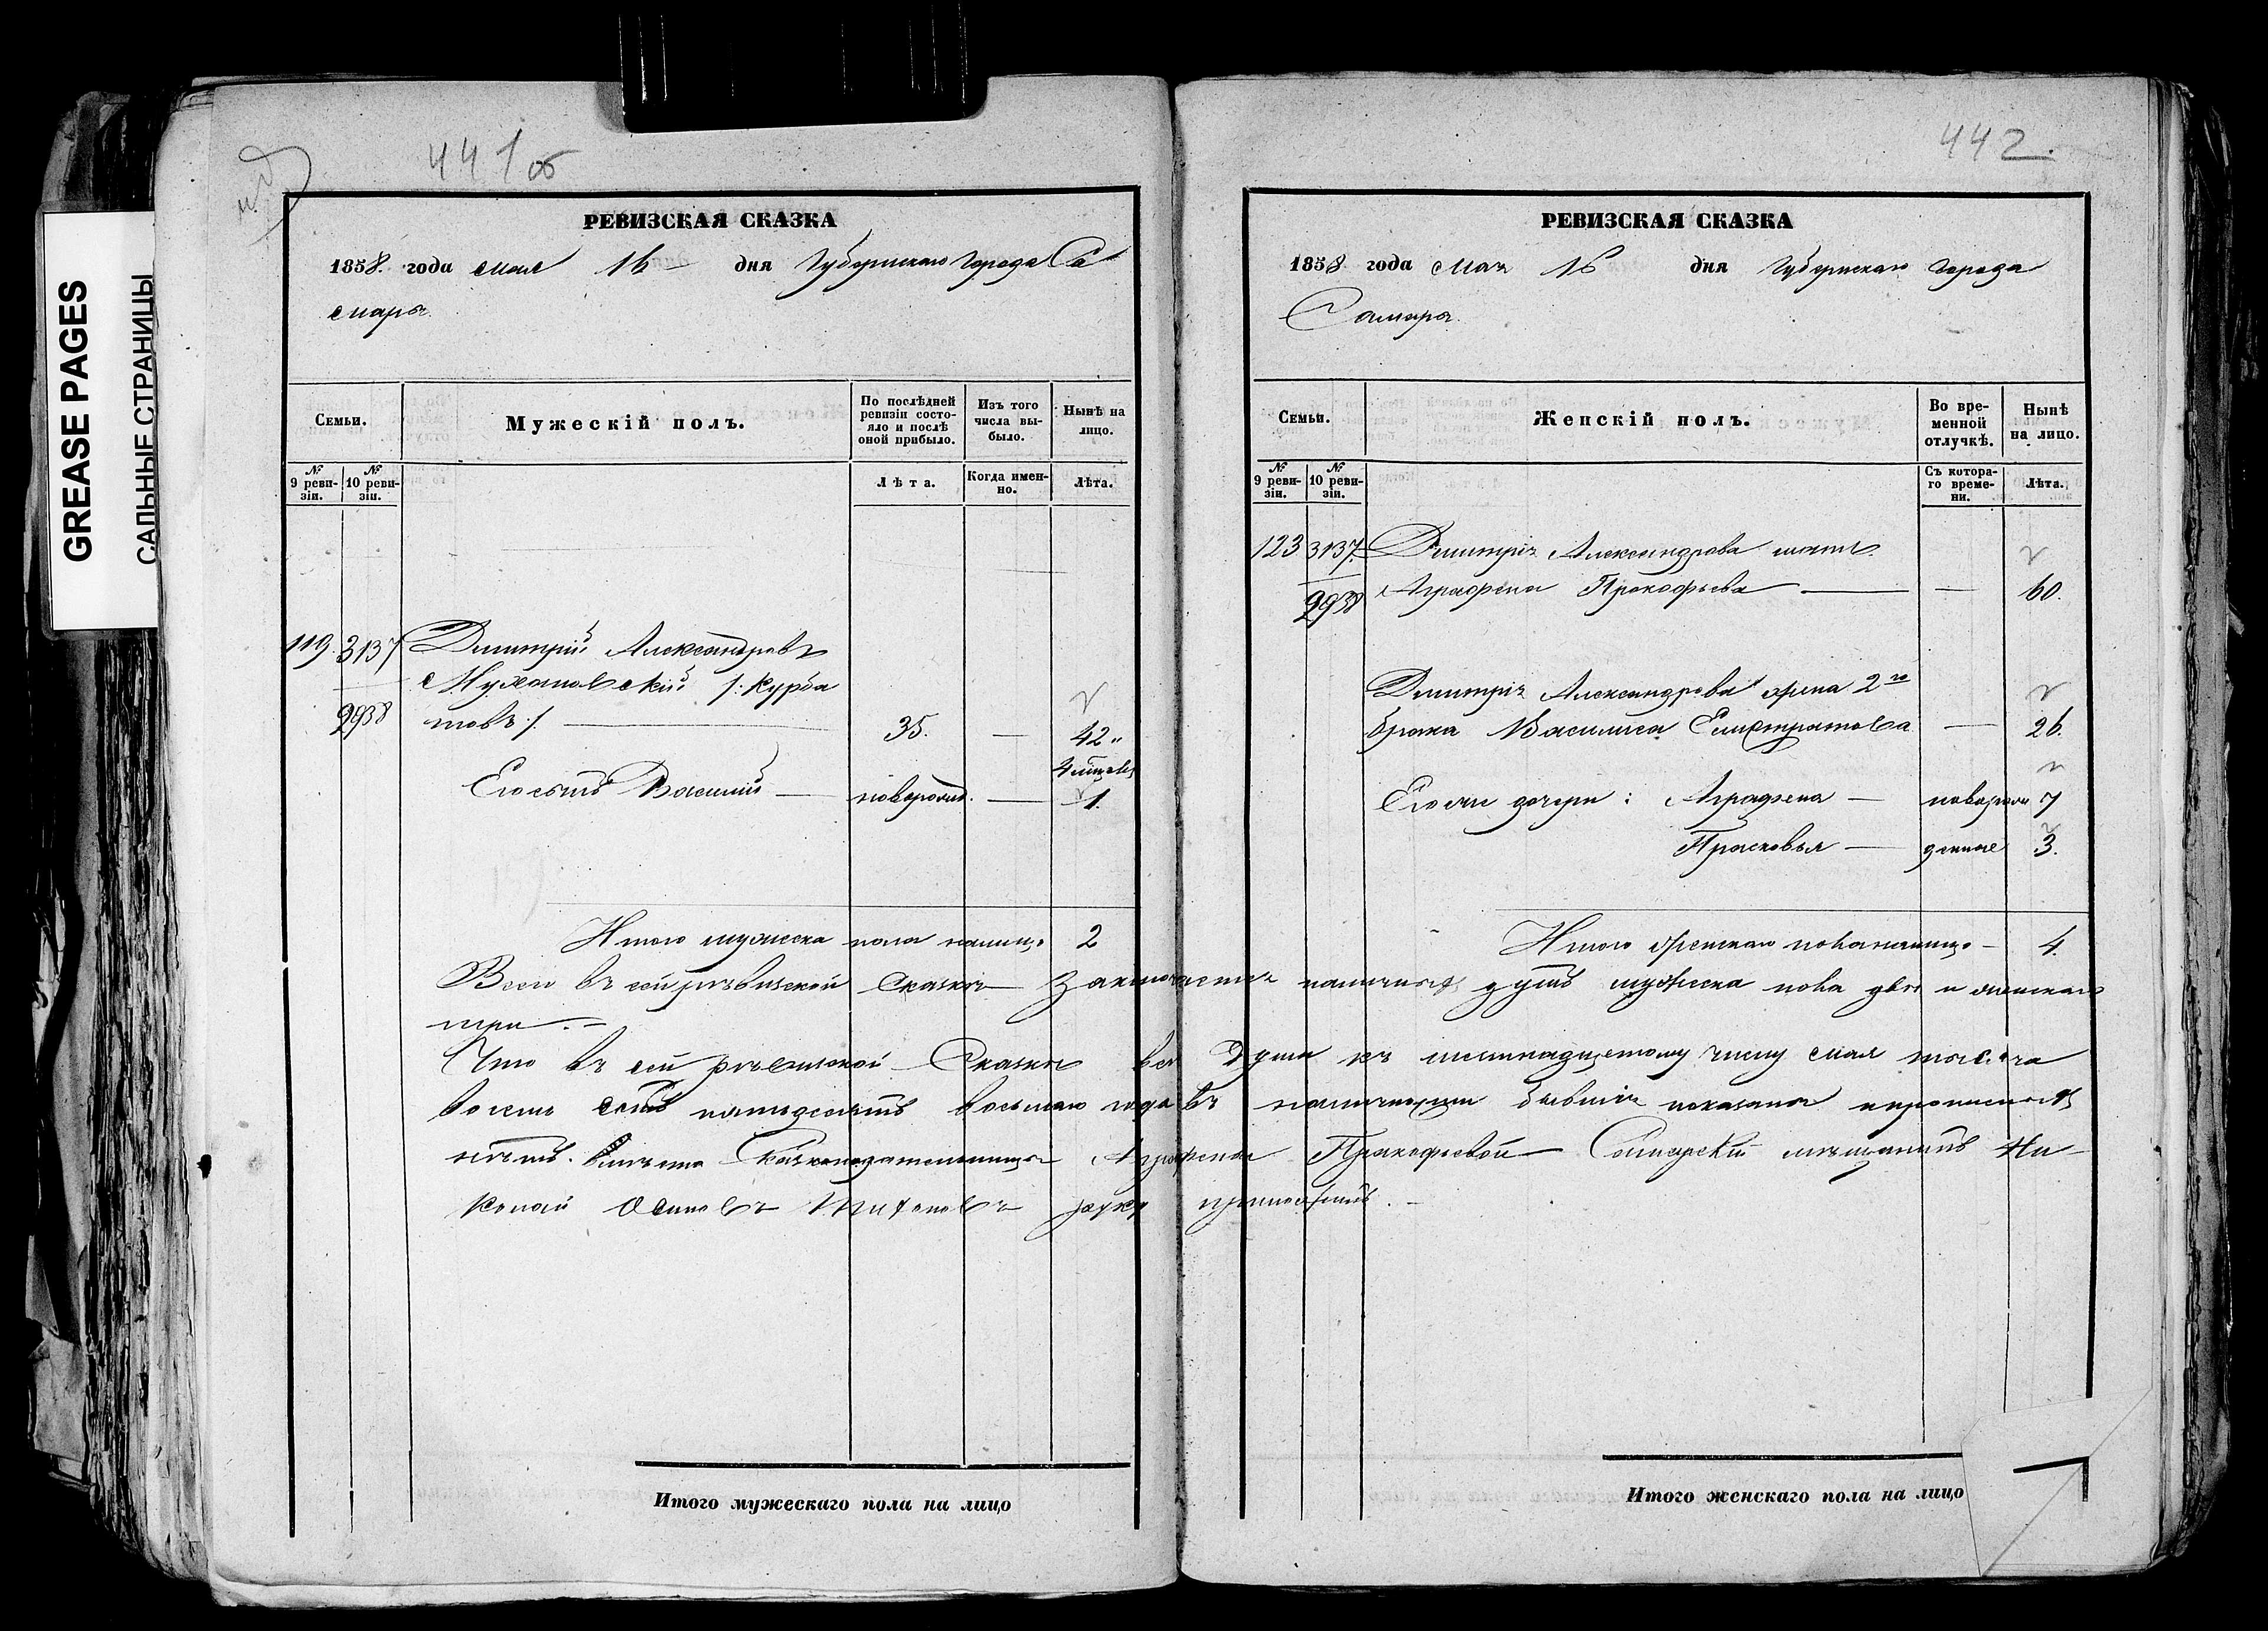 GREASE PAGES
САЛЬНЫЕ СТРАНИЦЫ
441 об
РЕВИЗСКАЯ СКАЗКА
1858. года мая 16 дня Губернскаго города Са
мары.
Семьи.
Мужескій полъ.
По послѣдней ревизіи состояло и послѣ оной прибыло.
Изъ того числа выбыло.
Нынѣ на лицо.
№ 9 ревизіи.
№ 10 ревизіи.
Лѣта.
Когда именно.
Лѣта.
119. 3137 Дмитрій Александровъ
2938 Мухановскій /: Курба
товъ :/ — 35. — 42"
Его сынъ Василій — новорожд. — 1.
Итого мужеска пола налицо 2
442.
РЕВИЗСКАЯ СКАЗКА
1858 года Мая 16 дня Губернскаго города
Самары.
Семьи.
Женскій полъ.
Во временной отлучкѣ.
Нынѣ на лицо.
№ 9 ревизіи.
№ 10 ревизіи.
Съ котораго времени.
Лѣта.
123 3137. Дмитрія Александрова мать
2938 Аграфена Прокофьева — — 60.
Дмитрія Александрова жена 2го
брака Василиса Емистратова — 26.
Его же дочери: Аграфена — новорож 7
Прасковья — денные 3.
Итого женскаго пола налицо — 4.
Всего въ сей ревизской сказкѣ заключается наличныхъ душъ мужеска пола двѣ и женскаго
три. —
Что въ сей ревизской Сказкѣ все души къ шестнадцатому числу мая тысяча
восемь сотъ пятьдесятъ восьмаго года въ наличности бывшія показаны и прописныхъ
нѣтъ. Вмѣсто Сказкоподательницы Аграфены Прокофьевой — Самарскій мѣщанинъ Ни-
колай Осиповъ Тихоновъ руку приложилъ. —
Итого мужескаго пола на лицо
Итого женскаго пола на лицо